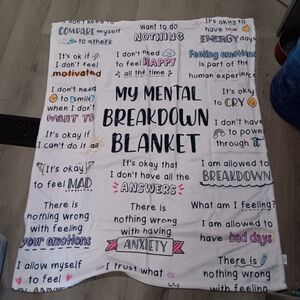 I don't need to
COMPARE myself
to others
Want to do
NOTHING
It's okay to
have low
ENERGY days
It's ok if
I don't feel
motivated
I don't need
to feel HAPPY
all the time
Feeling emotions
is part of the
human experience
I don't need
to smile
when I don't
WANT TO
MY MENTAL
BREAKDOWN
BLANKET
It's okay
to CRY
I don't have
to power
through it
It's okay if
I can't do it all
It's okay
to feel MAD
It's okay that
I don't have all the
ANSWERS
I am allowed to
BREAKDOWN
There is
nothing wrong
with feeling
your emotions
There is
nothing wrong
with having
ANXIETY
What am I feeling?
I am allowed to
have bad days
I allow myself
to feel
I trust what
There is
nothing wrong